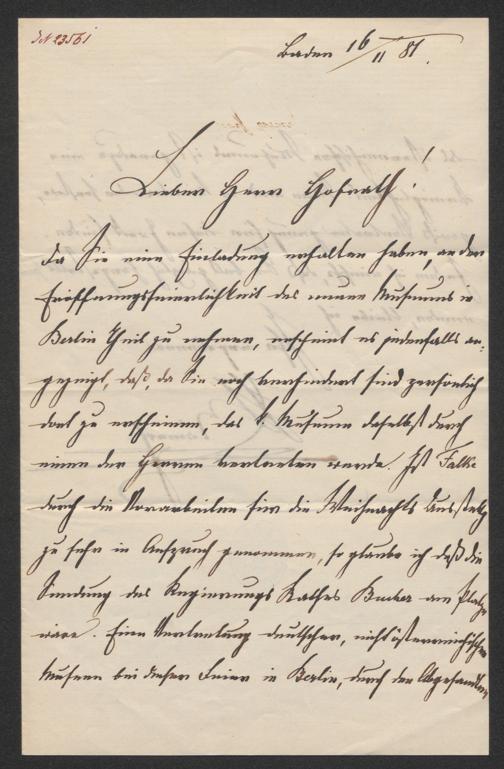 IN 23561
Baden 16/11 81.
Lieber Herr Hofrath!
Da Sie eine Einladung erhalten haben, an der
Eröffnungsfeierlichkeit des neuen Museums in
Berlin Theil zu nehmen, erscheint es jedenfalls an-
gezeigt, daß, da Sie noch verhindert sind persönlich
dort zu erscheinen, das k. Museum daselbst durch
einen der Herren vertreten werde. Ist Falke
durch die Vorarbeiten für die Weihnachts Ausstellg
zu sehr in Anspruch genommen, so glaube ich daß die
Sendung des Regierungs Rathes Bucher am Platze
wäre. Eine Vertretung deutscher, nicht österreichischer
Museen bei dieser Feier in Berlin, durch den Abgesandten